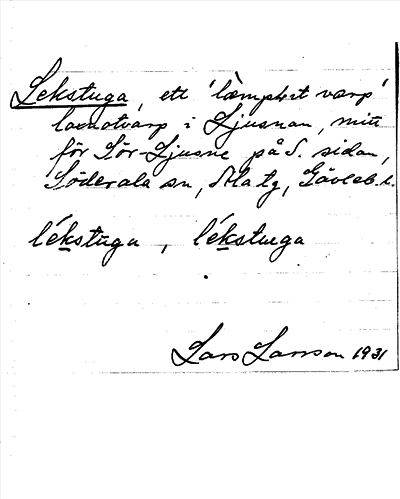 Lekstuga, ett 'læmphet varp'
laxnotvarp i Ljusnan, mitt
för Sör-Ljusne på S. sidan,
Söderala sn, Ala tg, Gävleb. l.
lékstuga, lékstuga
Lars Larsson 1931